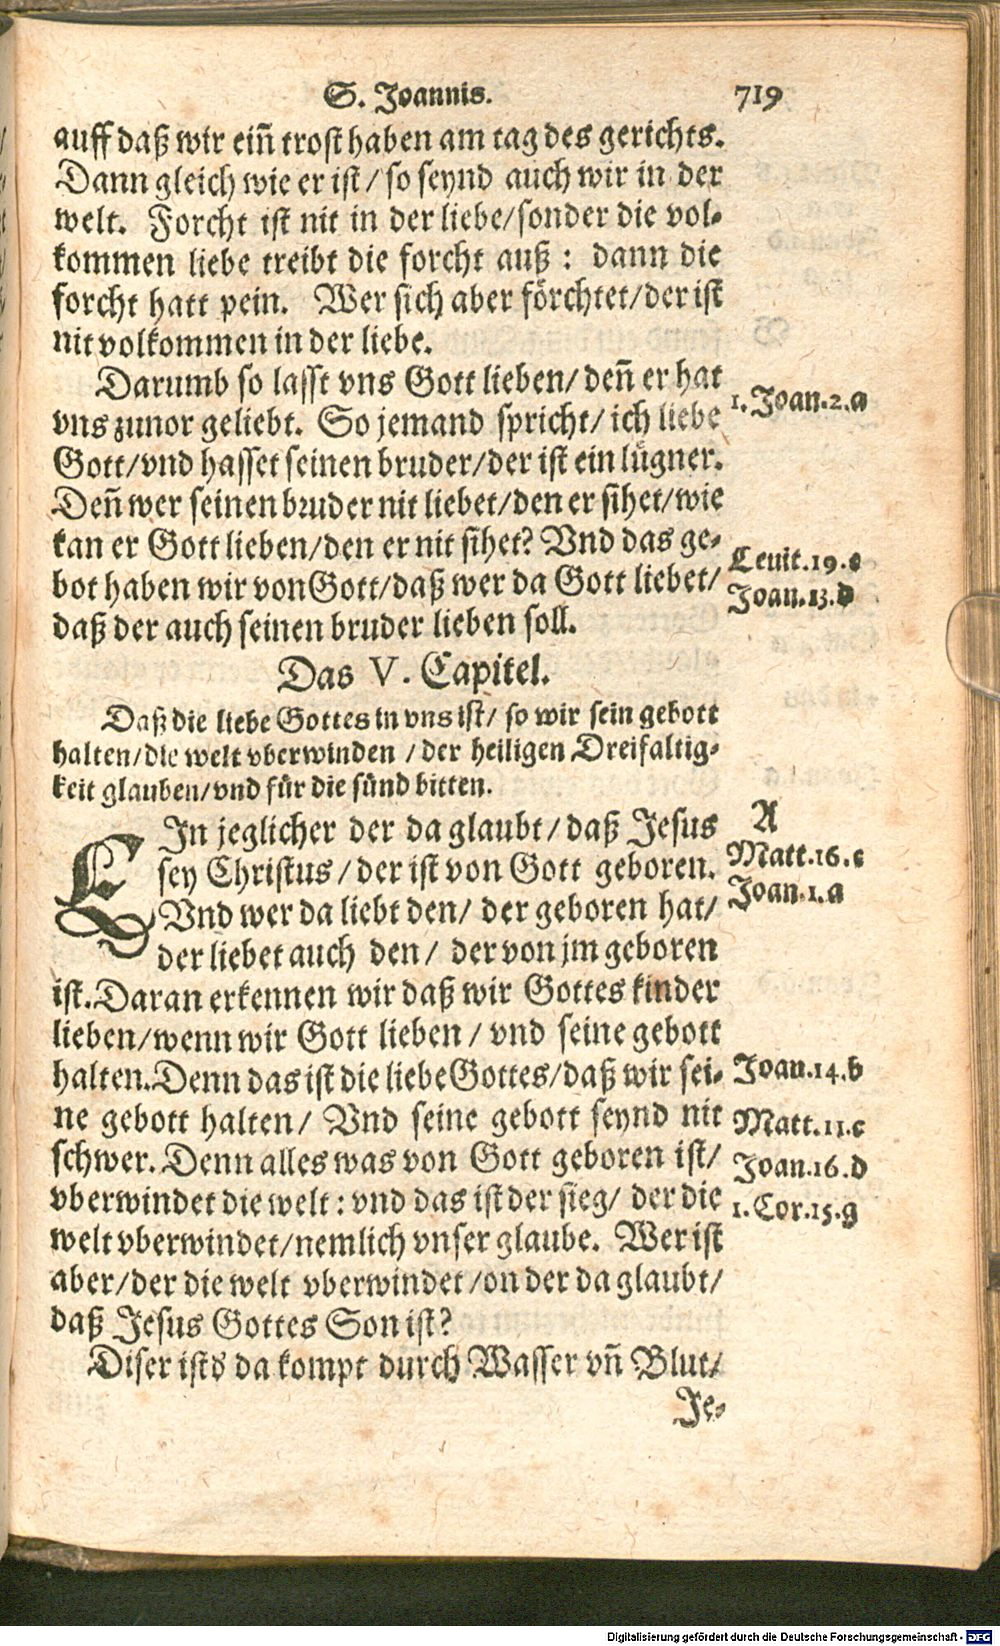 S. Joannis. 719
auff daß wir eiñ trost haben am tag des gerichts.
Dann gleich wie er ist / so seynd auch wir in der
welt. Forcht ist nit in der liebe/sonder die vol-
kommen liebe treibt die forcht auß : dann die
forcht hatt pein. Wer sich aber förchtet/der ist
nit volkommen in der liebe.
Darumb so lasst vns Gott lieben/ deñ er hat
1. Joan.2.a
vns zuuor geliebt. So jemand spricht/ ich liebe
Gott/vnd hasset seinen bruder/der ist ein lügner.
Deñ wer seinen bruder nit liebet/den er sihet/wie
kan er Gott lieben/den er nit sihet? Vnd das ge-
Leuit.19.e
bot haben wir von Gott/daß wer da Gott liebet/
Joan.13.d
daß der auch seinen bruder lieben soll.
Das V. Capitel.
Daß die liebe Gottes in vns ist/ so wir sein gebott
halten/die welt vberwinden /der heiligen Dreifaltig-
keit glauben/vnd für die sünd bitten.
A
EIn jeglicher der da glaubt/ daß Jesus
Matt.16.c
sey Christus / der ist von Gott geboren.
Joan.1.a
Vnd wer da liebt den/ der geboren hat/
der liebet auch den/ der von jm geboren
ist. Daran erkennen wir daß wir Gottes kinder
lieben/wenn wir Gott lieben / vnd seine gebott
halten. Denn das ist die liebe Gottes/daß wir sei-
Joan.14.b
ne gebott halten/ Vnd seine gebott seynd nit
Matt.11.c
schwer. Denn alles was von Gott geboren ist/
Joan.16.d
vberwindet die welt : vnd das ist der sieg/ der die
1.Cor.15.g
welt vberwindet/nemlich vnser glaube. Wer ist
aber/der die welt vberwindet/on der da glaubt/
daß Jesus Gottes Son ist?
Diser ists da kompt durch Wasser vñ Blut/
Je-
Digitalisierung gefördert durch die Deutsche Forschungsgemeinschaft - DFG